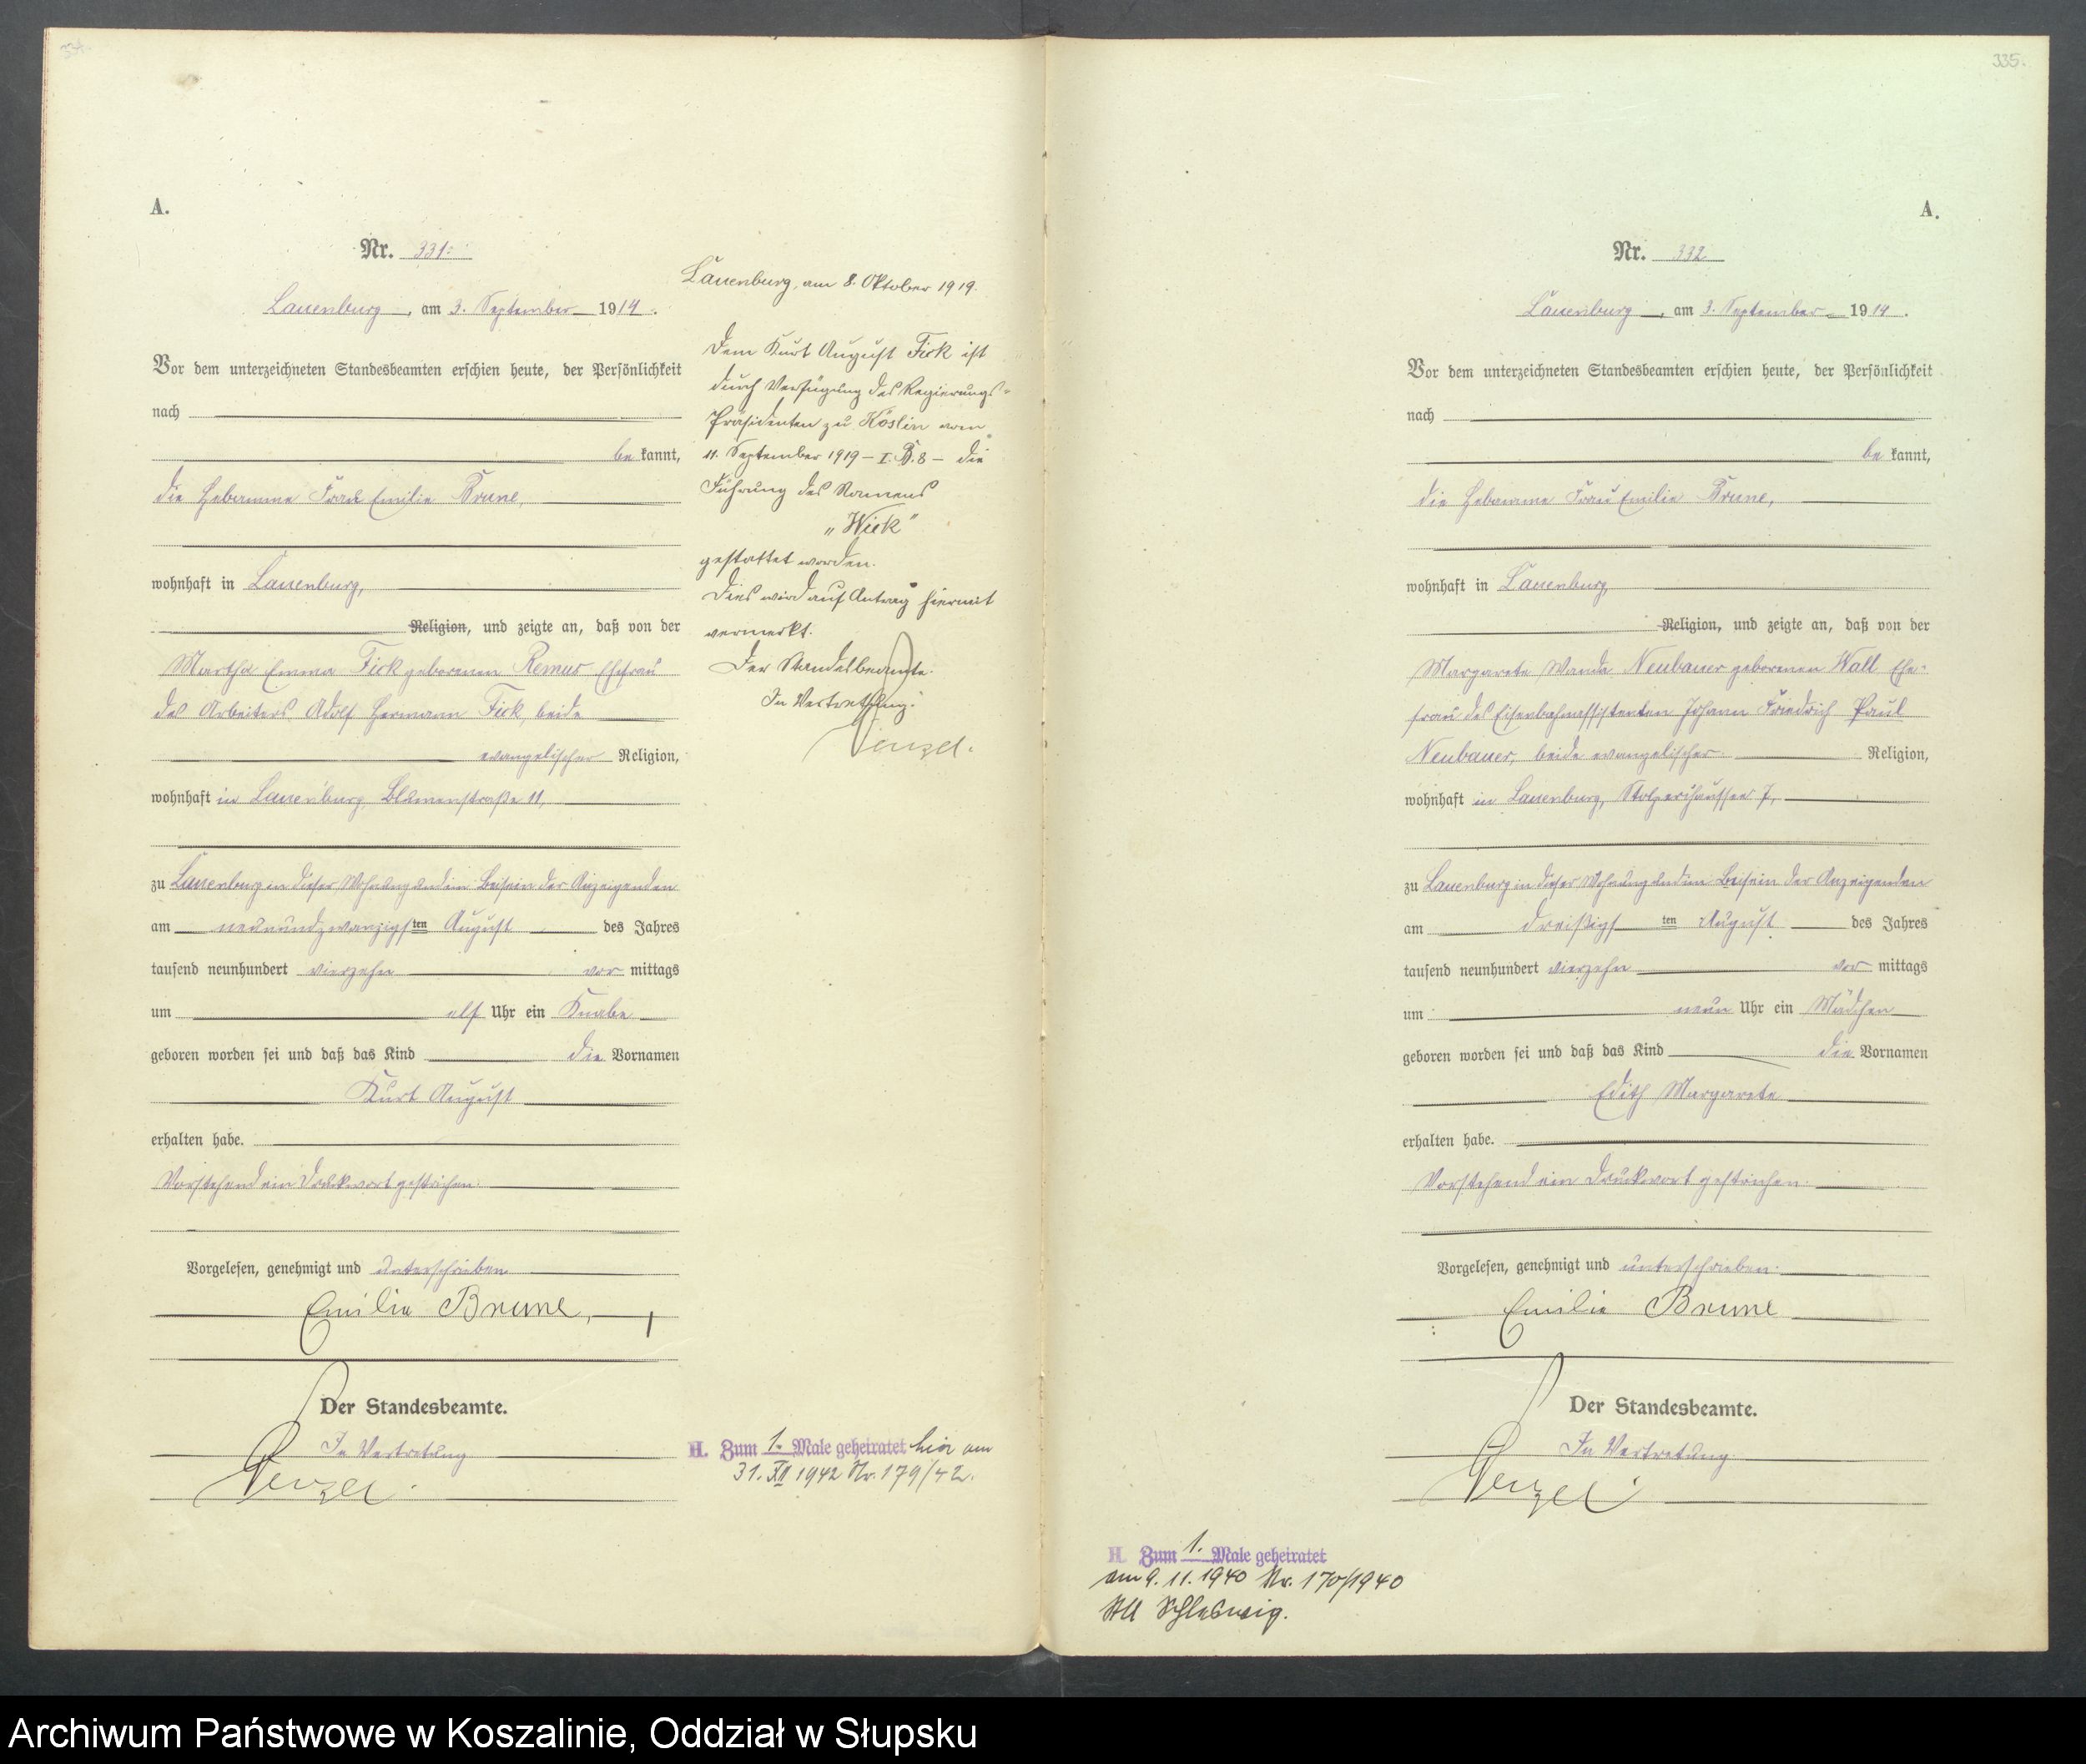 334.
A.
Nr. 331.
Lauenburg, am 3. September 1914.
Vor dem unterzeichneten Standesbeamten erschien heute, der Persönlichkeit
nach
be kannt,
die Hebamme Frau Emilie Brune,
wohnhaft in Lauenburg,
Religion, und zeigte an, daß von der
Martha Emma Fick geborenen Remus, Ehefrau
des Arbeiters Adolf Hermann Fick, beide
evangelischer Religion,
wohnhaft in Lauenburg, Blumenstraße 11,
zu Lauenburg in dieser Wohnung und im Beisein der Anzeigenden
am neunundzwanzigsten August des Jahres
tausend neunhundert vierzehn vor mittags
um elf Uhr ein Knabe
geboren worden sei und daß das Kind die Vornamen
Kurt August
erhalten habe.
Vorstehend ein Druckwort gestrichen.
Vorgelesen, genehmigt und unterschrieben
Emilie Brune,
Der Standesbeamte.
In Vertretung
Lauenburg, am 8. Oktober 1919.
Dem Kurt August Fick ist
durch Verfügung des Regierungs-
Präsidenten zu Köslin vom
11. September 1919 – I. B. 8 – die
Führung des Namens
„Wiek“
gestattet worden.
Dies wird auf Antrag hiermit
vermerkt.
Der Standesbeamte.
In Vertretung:
H. Zum 1. Male geheiratet hier am
31. XII 1942 Nr. 179/42.
335.
A.
Nr. 332
Lauenburg, am 3. September 1914.
Vor dem unterzeichneten Standesbeamten erschien heute, der Persönlichkeit
nach
be kannt,
die Hebamme Frau Emilie Brune,
wohnhaft in Lauenburg,
Religion, und zeigte an, daß von der
Margarete Wanda Neubauer geborenen Wall, Ehe-
frau des Eisenbahnassistenten Johann Friedrich Paul
Neubauer, beide evangelischer Religion,
wohnhaft in Lauenburg, Stolperchaussee 7,
zu Lauenburg in dieser Wohnung und im Beisein der Anzeigenden
am dreißigsten August des Jahres
tausend neunhundert vierzehn vor mittags
um neun Uhr ein Mädchen
geboren worden sei und daß das Kind die Vornamen
Edith Margarete
erhalten habe.
Vorstehend ein Druckwort gestrichen.
Vorgelesen, genehmigt und unterschrieben.
Emilie Brune
Der Standesbeamte.
In Vertretung.
H. Zum 1. Male geheiratet
am 9. 11. 1940 Nr. 170/1940
StA Schleswig.
Archiwum Państwowe w Koszalinie, Oddział w Słupsku